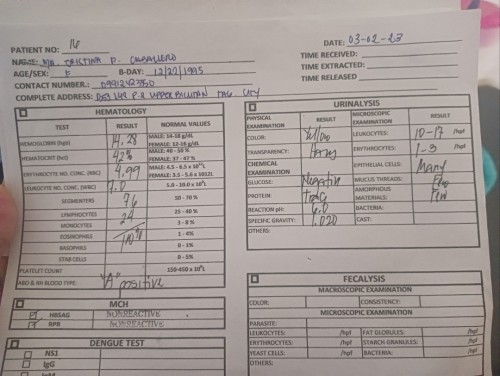 PATIENT NO: 16
DATE: 03-02-23
NAME: MA. CRISTINA P. CABALLERO
TIME RECEIVED:
AGE/SEX: F B-DAY: 12/27/1995
TIME EXTRACTED:
CONTACT NUMBER.:
TIME RELEASED
COMPLETE ADDRESS: CITY
HEMATOLOGY
TEST RESULT NORMAL VALUES
HEMOGLOBIN (hgb) 14.28 MALE: 14-18 g/dL
FEMALE: 12-16 g/dL
HEMATOCRIT (hct) 42% MALE: 40 - 50 %
FEMALE: 37 - 47 %
ERYTHROCYTE NO. CONC. (RBC) 4.99
FEMALE: 3.5 - 5.0 x 1012L
LEUKOCYTE NO. CONC. (WBC) 7.0 5.0 - 10.0 x 10⁹L
SEGMENTERS 76 10 - 70 %
LYMPHOCYTES 24 25 - 40 %
MONOCYTES 3 - 8 %
EOSINOPHILS 100% 1 - 4%
BASOPHILS 0 - 1%
STAB CELLS 0 - 5%
PLATELET COUNT 150-450 x 10⁹L
ABO & RH BLOOD TYPE: "A" positive
MCH
HBSAG NONREACTIVE
RPR NONREACTIVE
DENGUE TEST
NS1
IgG
IgM
URINALYSIS
PHYSICAL EXAMINATION RESULT MICROSCOPIC EXAMINATION RESULT
COLOR: LEUKOCYTES: 10-17 /hpf
TRANSPARENCY: Hazy ERYTHROCYTES: 1-3 /hpf
CHEMICAL EXAMINATION EPITHELIAL CELLS: Many
GLUCOSE: Negative MUCUS THREADS: Few
PROTEIN: Trace AMORPHOUS MATERIALS: Few
REACTION pH: 6.0 BACTERIA:
SPECIFIC GRAVITY: 1.020 CAST:
OTHERS:
FECALYSIS
MACROSCOPIC EXAMINATION
COLOR: CONSISTENCY:
MICROSCOPIC EXAMINATION
PARASITE:
LEUKOCYTES: /hpf FAT GLOBULES: /hpf
ERYTHROCYTES: /hpf STARCH GRANULES: /hpf
YEAST CELLS: /hpf BACTERIA: /hpf
OTHERS: